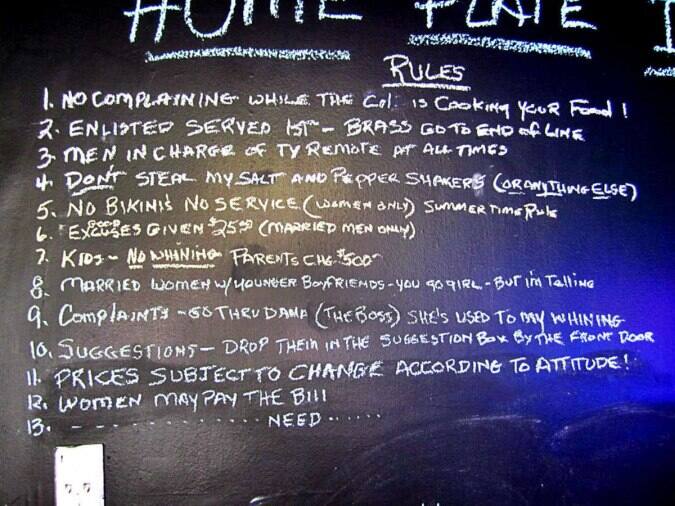 HOME PLATE
RULES
1. NO COMPLAINING WHILE THE Col. IS COOKING YOUR Food!
2. ENLISTED SERVED 1ST - BRASS GO TO END OF LINE
3. MEN IN CHARGE OF TV REMOTE AT ALL TIMES
4. DONT STEAL MY SALT AND PEPPER SHAKERS (OR ANYTHING ELSE)
5. NO BIKINIS NO SERVICE (WOMEN ONLY) SUMMERTIME RULE
6. GOOD EXCUSES GIVEN $25.00 (MARRIED MEN ONLY)
7. KIDS - NO WHINING PARENTS CHG $500
8. MARRIED WOMEN W/ YOUNGER BOYFRIENDS - YOU GO GIRL - BUT I'm Telling
9. COMPLAINTS - GO THRU DANA (THE BOSS) SHE'S USED TO MY WHINING
10. SUGGESTIONS - DROP THEM IN THE SUGGESTION BOX BY THE FRONT DOOR
11. PRICES SUBJECT TO CHANGE ACCORDING TO ATTITUDE!
12. WOMEN MAY PAY THE Bill
13. - - - - - - - - - - - - - - NEED - - - - - -